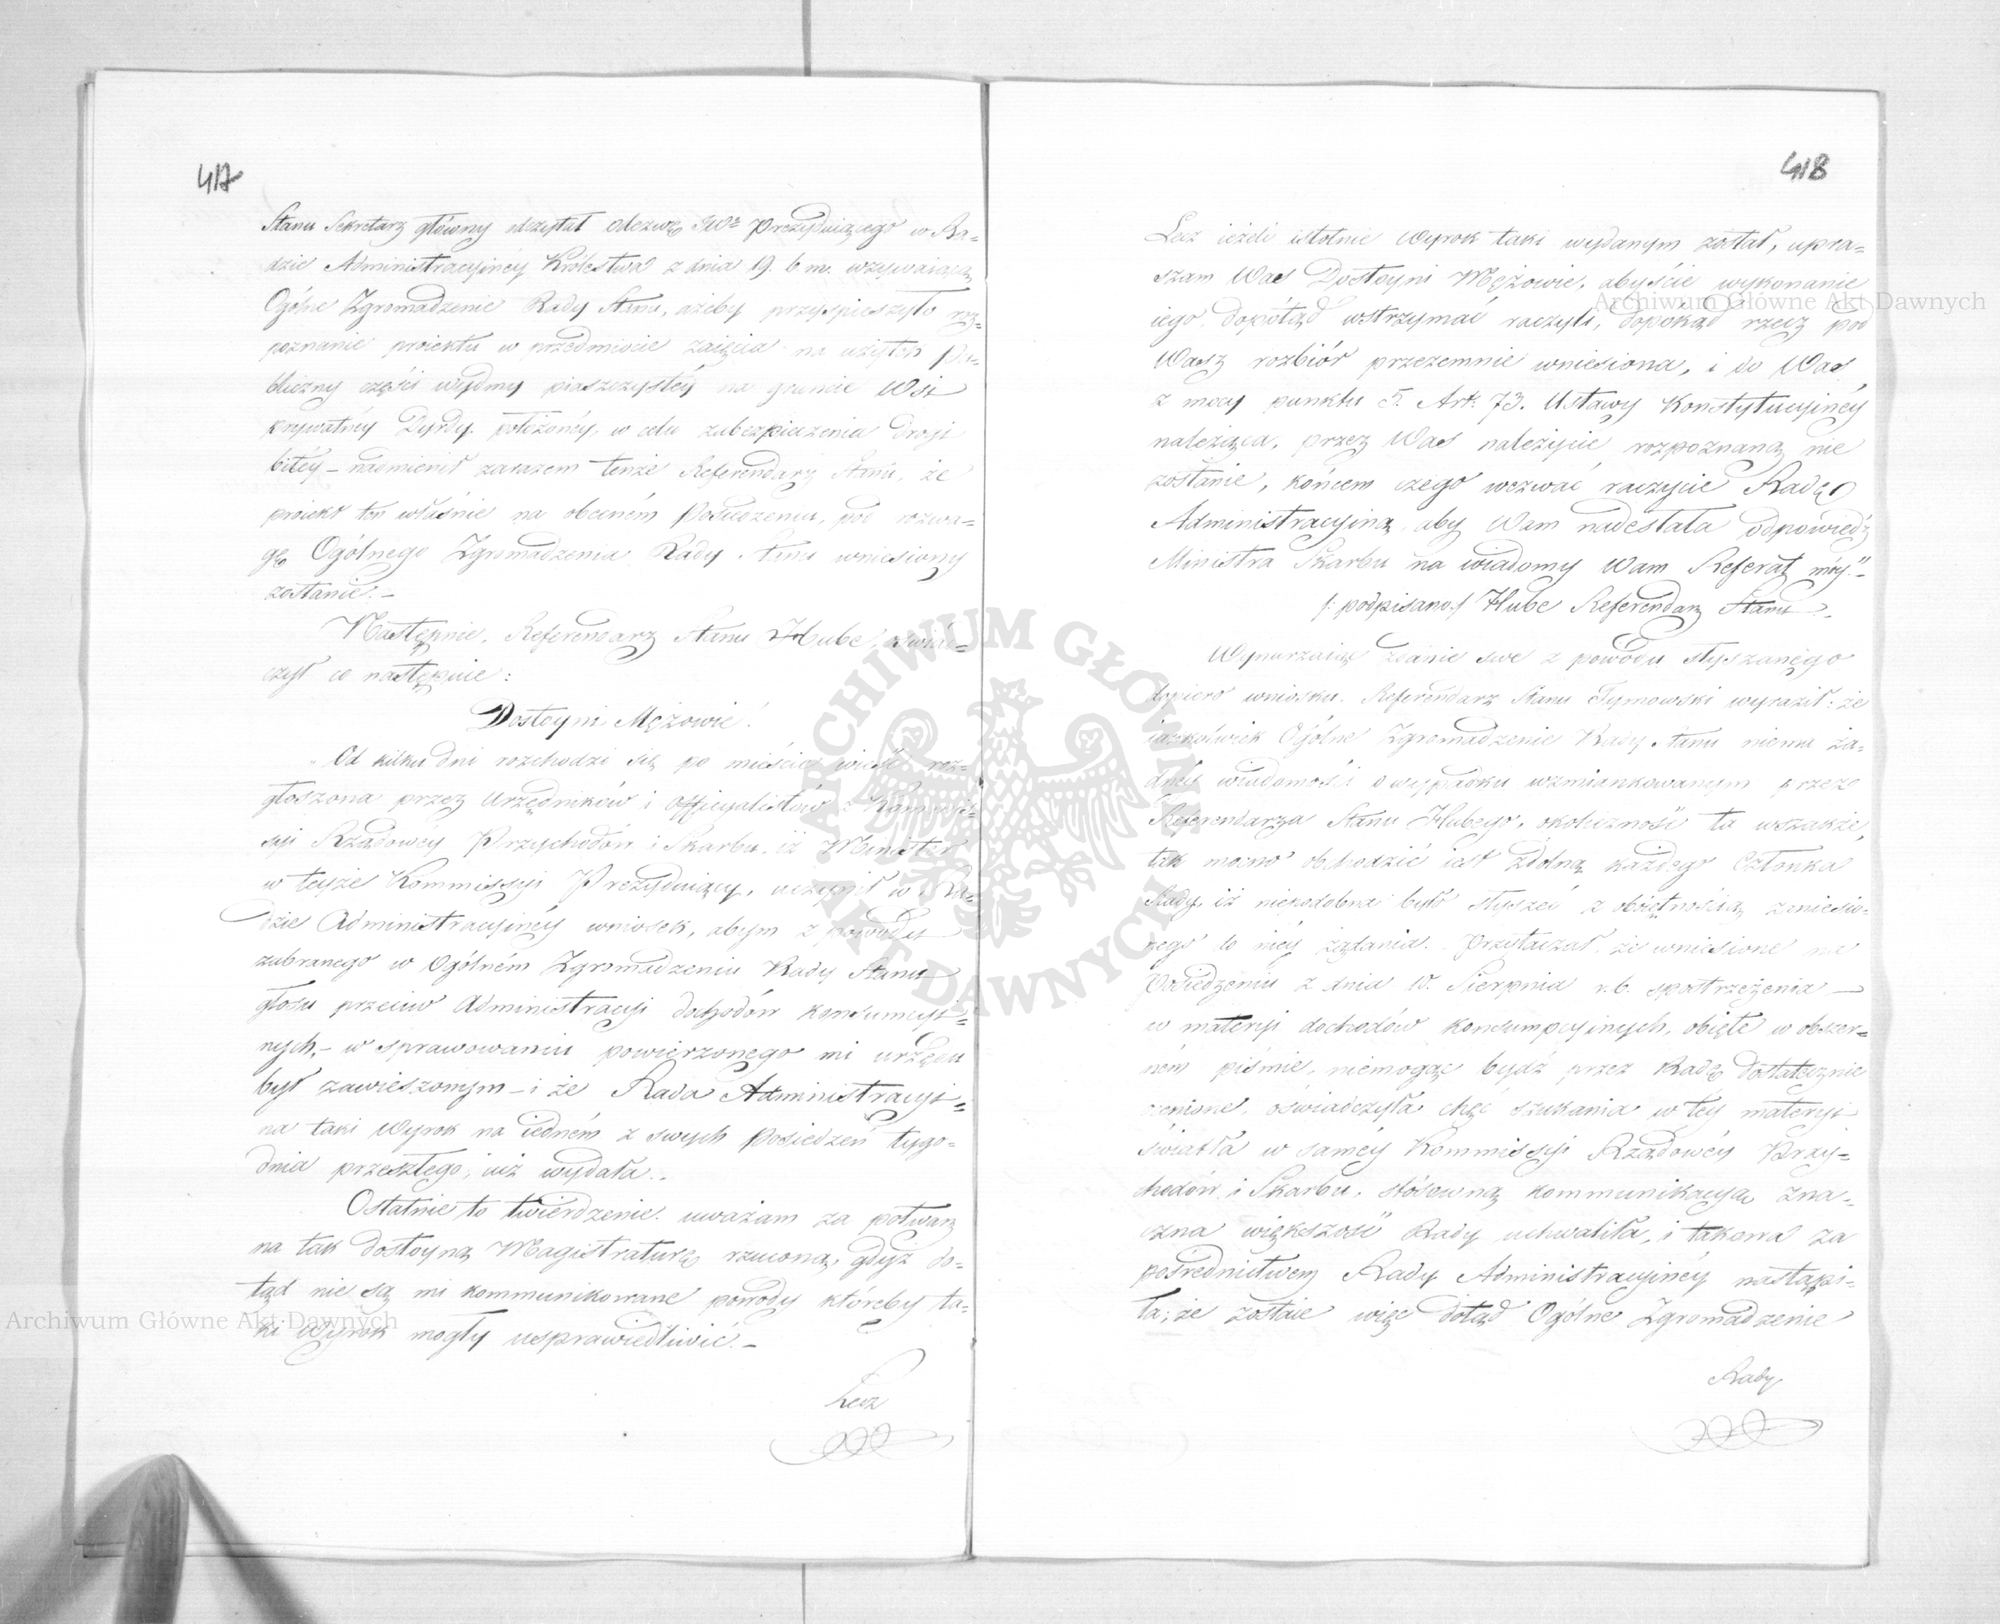 417
Stanu Sekretarz główny odczytał Odezwę JWo Prezyduiącego w Ra-
dzie Administracyinéy Królestwa z dnia 19. b. m. wzywaiącą
Ogólne Zgromadzenie Rady Stanu, ażeby przyspieszyło roz-
poznanie proiektu w przedmiocie zaięcia na użytek Pu-
bliczny części wydmy piaszczystéy na gruncie Wsi
prywatnéy Dyrdy położonéy, w celu zabezpieczenia drogi
bitéy – nadmienił zarazem tenże Referendarz Stanu, że
proiekt ten właśnie na obecném Posiedzeniu, pod rozwa-
gę Ogólnego Zgromadzenia Rady Stanu wniesiony
zostanie. –
Następnie, Referendarz Stanu Hube, oświad-
czył co następuie:
Dostoyni Mężowie!
„Od kilku dni rozchodzi się po mieście wieść roz-
głoszona przez Urzędników i Officyalistów z Kommis-
syi Rządowéy Przychodów i Skarbu, iż Minister
w teyże Kommissyi Prezyduiący, uczynił w Ra-
dzie Administracyinéy wniosek, abym z powodu
zabranego w Ogólném Zgromadzeniu Rady Stanu
głosu przeciw Administracyi dochodów konsumcyi-
nych, – w sprawowaniu powierzonego mi urzędu
był zawieszonym – i że Rada Administracyi-
na taki Wyrok na iedném z swych Posiedzeń tygo-
dnia przeszłego, iuż wydała.
Ostatnie to twierdzenie uważam za potwarz
na tak dostoyną Magistraturę rzuconą, gdyż do-
tąd nie są mi kommunikowane powody któreby ta-
ki Wyrok mogły usprawiedliwić. –
Lecz
418
Lecz ieżeli istotnie Wyrok taki wydanym został, upra-
szam Was Dostoyni Mężowie, abyście wykonanie
iego dopótąd wstrzymać raczyli, dopokąd rzecz pod
Wasz rozbiór przezemnie wniesiona, i do Was
z mocy punktu 5. Art. 73. Ustawy Konstytucyinéy
należąca, przez Was należycie rozpoznaną nie
zostanie, końcem czego wezwać raczycie Radę
Administracyiną, aby Wam nadesłała odpowiedź
Ministra Skarbu na wiadomy Wam Referat móy." –
/: podpisano :/ Hube Referendarz Stanu.
Wynurzaiąc zdanie swe z powodu słyszanego
dopiero wniosku, Referendarz Stanu Tymowski wyraził: że
iakkolwiek Ogólne Zgromadzenie Rady Stanu niema ża-
dnéy wiadomości o wypadku wzmiankowanym przez
Referendarza Stanu Hubego, okoliczność ta wszakże,
tak mocno obchodzić iest zdolną każdego Członka
Rady, iż niepodobna było słyszeć z obojętnością zaniesio-
nego do niéy żądania. Przytaczał, że wniesione na
Posiedzeniu z dnia 10. Sierpnia r. b. spostrzeżenia –
w materyi dochodów konsumpcyinych, obięte w obszer-
ném piśmie, niemogąc bydź przez Radę dostatecznie
cenione, oświadczyła chęć szukania w tey materyi
światła w saméy Kommissyi Rządowéy Przy-
chodów i Skarbu, stósowną kommunikacyą zna-
czna większość Rady uchwaliła, i takowa za
pośrednictwem Rady Administracyinéy nastąpi-
ła; że zostaie więc dotąd Ogólne Zgromadzenie
Rady
Archiwum Główne Akt Dawnych
Archiwum Główne Akt Dawnych
ARCHIWUM GŁÓWNE AKT DAWNYCH